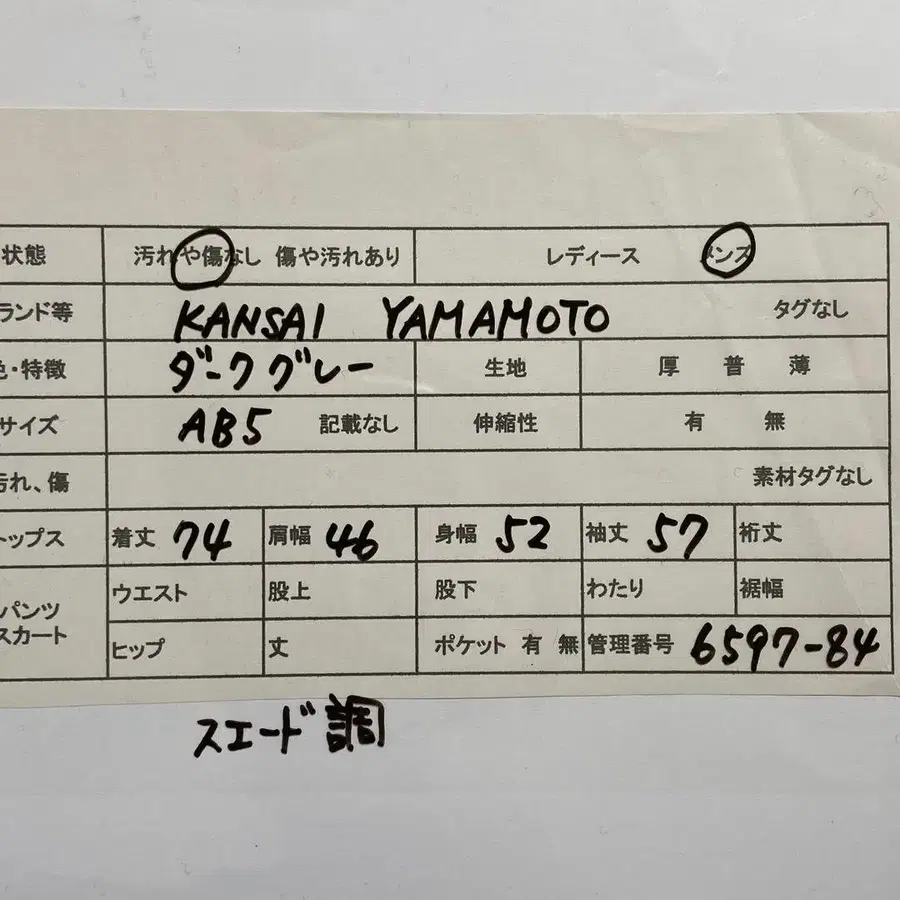 状態 汚れや傷なし 傷や汚れあり レディース メンズ
ランド等 KANSAI YAMAMOTO タグなし
色・特徴 ダークグレー 生地 厚 普 薄
サイズ AB5 記載なし 伸縮性 有 無
汚れ、傷 素材タグなし
トップス 着丈 74 肩幅 46 身幅 52 袖丈 57 裄丈
パンツ ウエスト 股上 股下 わたり 裾幅
スカート ヒップ 丈 ポケット 有 無 管理番号 6597-84
スエード調